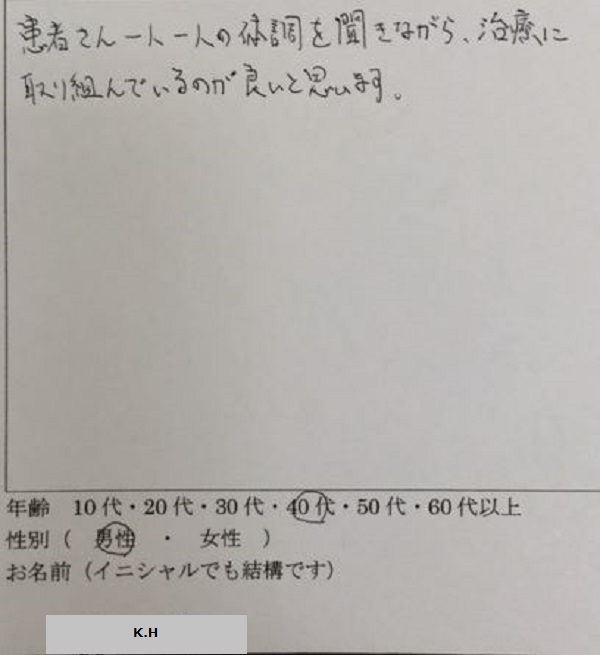 患者さん一人一人の体調を聞きながら、治療に
取り組んでいるのが良いと思います。
年齢 10代・20代・30代・40代・50代・60代以上
性別（ 男性 ・ 女性 ）
お名前（イニシャルでも結構です）
K.H